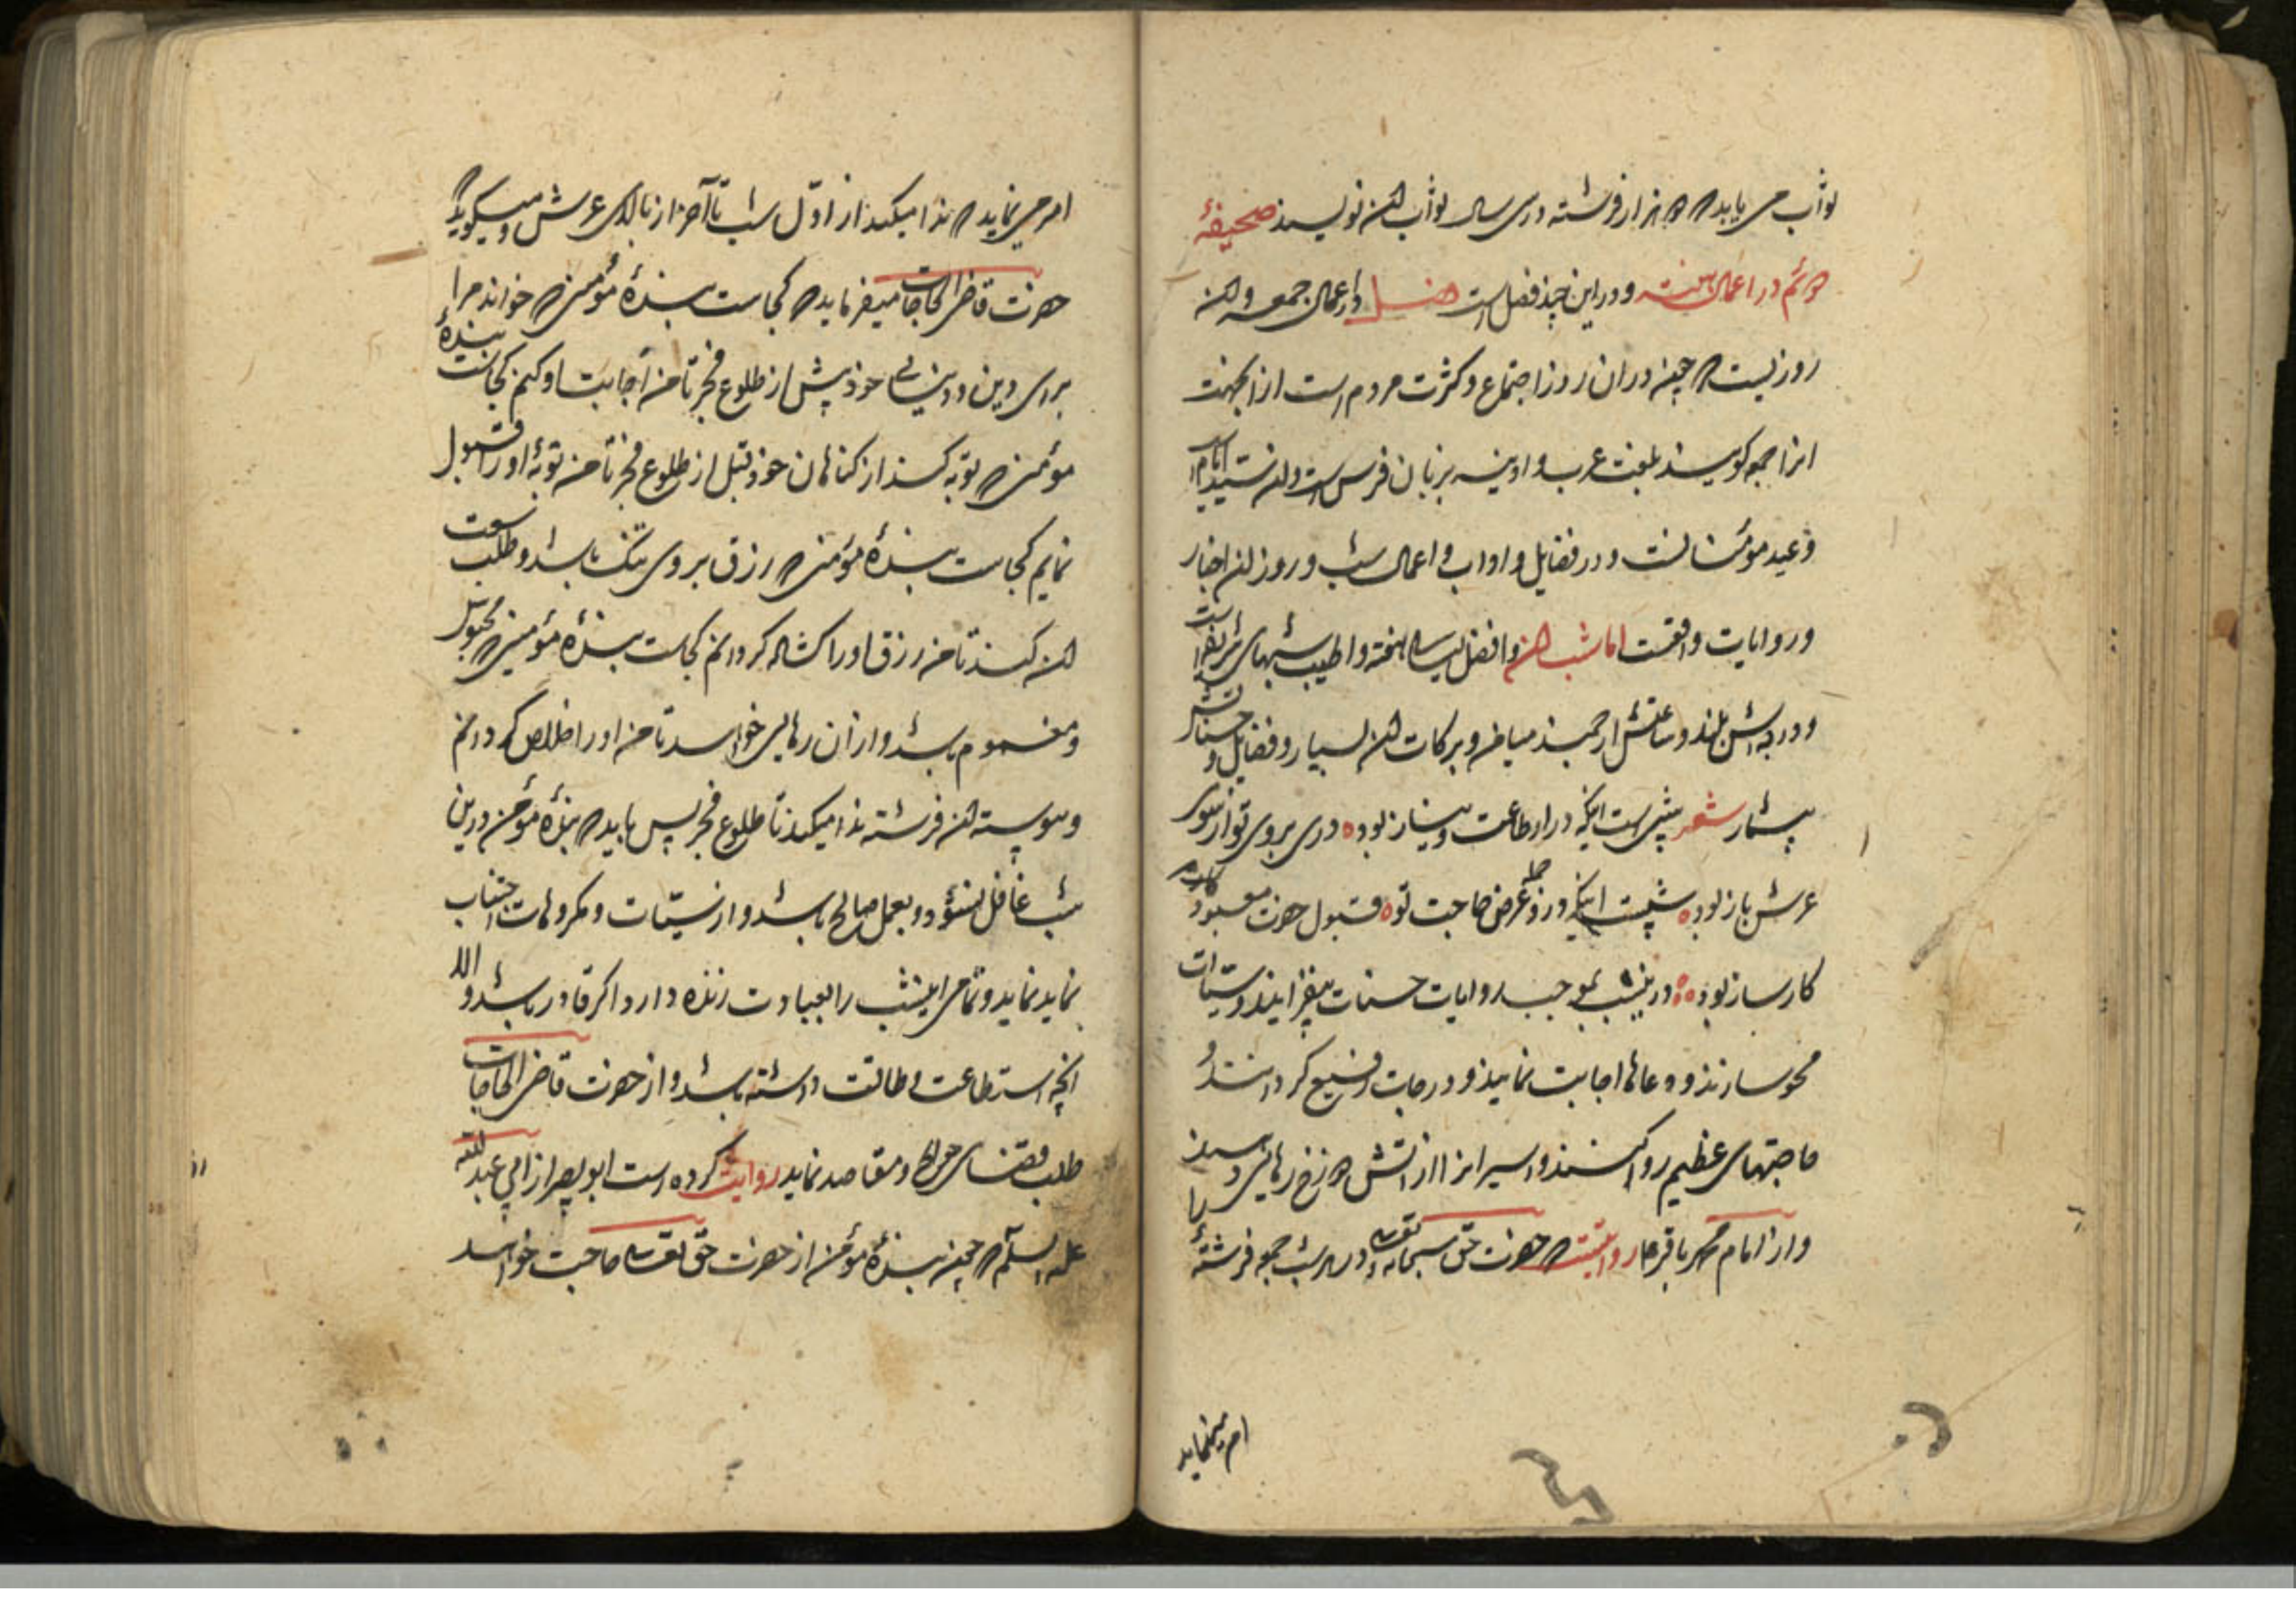 ثواب می یابد که هزار فرشته در سی سال ثواب آن نویسند صحیفهٔ
در اعمال سنت و در این چند فصل است فصل در اعمال جمعه و آن
روزیست که چون در آن روز اجتماع و کثرت مردم است از آن جهت
انرا جمعه کویند بلغت عرب و ادینه بزبان فرس است و آن سید ایام
و عید مؤمنانست و در فضایل و اداب و اعمال شب و روز آن اخبار
و روایات واقعست اما شب آن و افضل لیالی هفته و اطیب شبهای
و درجه اش بلند و ساعتش ارجمند میامن و برکات آن بسیار و فضایل و حسناتش
بیشمار شعر شبی است اینکه در او طاعت و نیاز بود دری بروی تو از سوی
عرش باز بود شبیست اینکه در و عرض حاجت تو قبول حضرت معبود
کارساز بود درینشب بموجب روایات حسنات بیفزایند و سیئات
محو سازند و دعاها اجابت نمایند و درجات رفیع کردانند
حاجتهای عظیم روا کنند و اسیرانرا از اتش دوزخ رهایی دهند
و از امام محمد باقر روایتست که حضرت حق سبحانه و تعالی در هر شب جمعه فرشتهٔ را
امر مینماید
امر می نماید که ندا میکند از اول شب تا آخر از بالای عرش و میکوید که
حضرت قاضی الحاجات میفرماید که کجاست بندهٔ مؤمنی که خواند مرا
برای دین و دنیای خود پیش از طلوع فجر تا من اجابت او کنم کجاست بندهٔ
مؤمنی که توبه کند از کناهان خود قبل از طلوع فجر تا من توبهٔ او را قبول
نمایم کجاست بندهٔ مؤمنی که رزق بر وی تنک باشد و طلب وسعت
آن کند تا من رزق او را کشاده کردانم کجاست بندهٔ مؤمنی که محبوس
و مغموم باشد و از آن رهایی خواهد تا من او را خلاص کردانم
و پیوسته آن فرشته ندا میکند تا طلوع فجر پس باید که بندهٔ مؤمن درین
شب غافل نشود و بعمل صالح باشد و از سیئات و مکروهات اجتناب
نماید نماید و تمامی اینشب را بعبادت زنده دارد اکر قادر باشد و الا
انچه استطاعت و طاقت داشته باشد و از حضرت قاضی الحاجات
طلب قضای حوایج و مقاصد نماید روایت کرده است ابو بصیر از ابی عبد الله
علیه السلام که چون بندهٔ مؤمن از حضرت حق تعالی حاجت خواهد